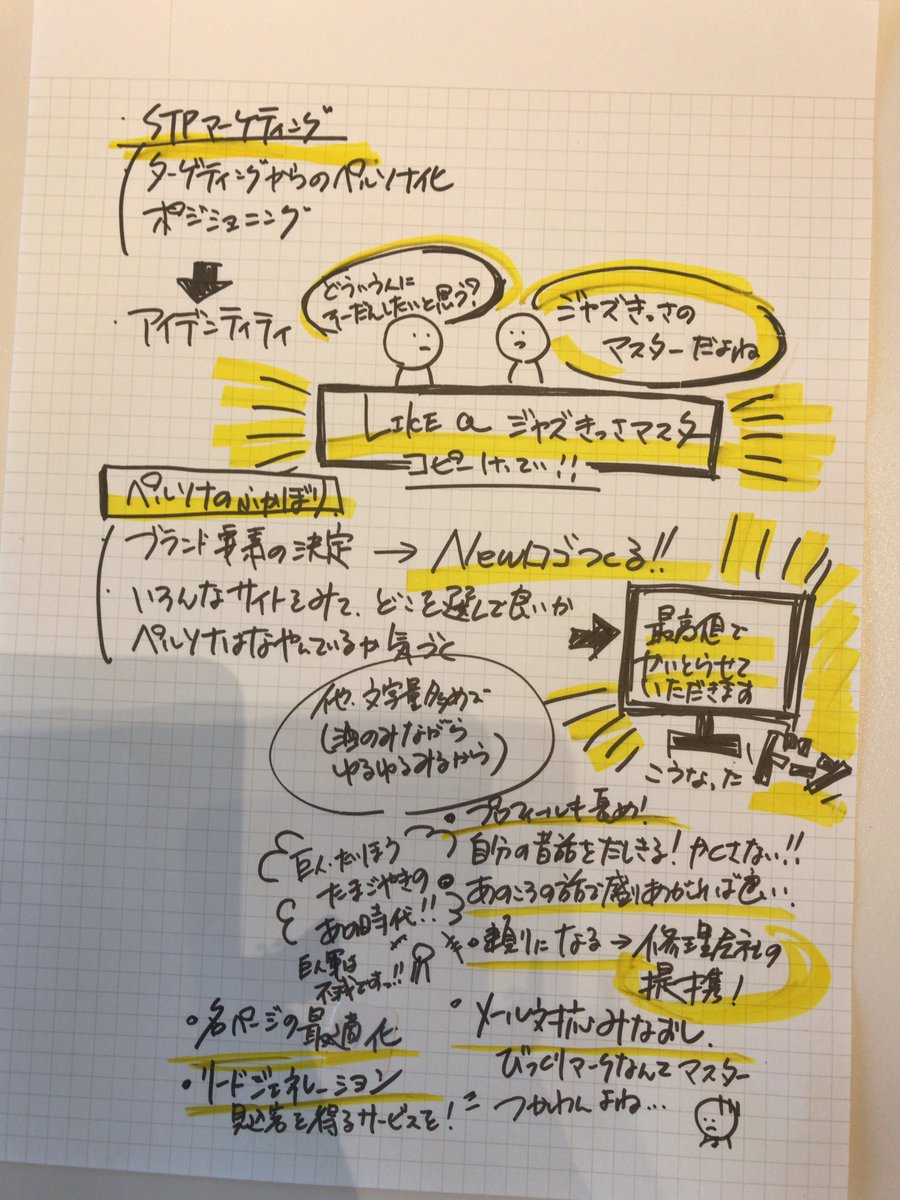 ・STPマーケティング
ターゲティングからのペルソナ化
ポジショニング
アイデンティティ
どういう人に
そーだんしたいと思う?
ジャズきっさの
マスターだよね
LIKE a ジャズきっさマスター
コピーけってい!!
ペルソナのふかぼり
ブランド要素の決定 → Newロゴつくる!!
いろんなサイトをみて、どこを選んで良いか
ペルソナはなやんでいるか気づく
最高値で
かいとらせて
いただきます
こうなった
ドーン
他、文字量多めで
(酒のみながら
ゆるゆるみるから)
・プロフィールも長め!
自分の昔話をだしきる!かくさない!!
・あのころの話で盛りあがれば良い..
巨人・だいほう
たまごやきの
あの時代!!
巨人軍は
不滅ですっ!!
・頼りになる→修理会社の
提携!
・各ページの最適化
・リードジェネレーション
見込客を得るサービスを!
・メール対応みなおし.
びっくりマークなんてマスター
つかわんよね…